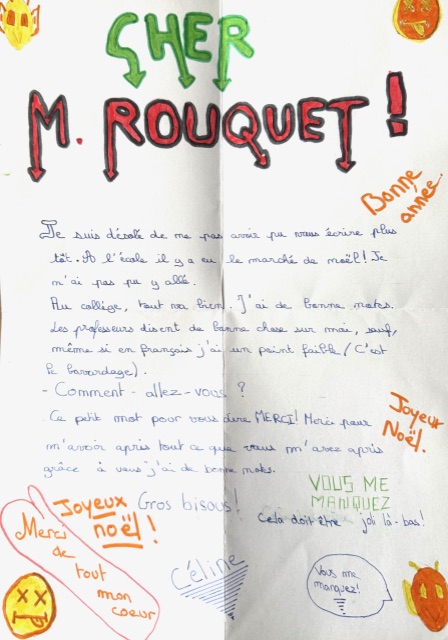 CHER
M. ROUQUET !
Bonne
année.
Je suis désolé de me pas avoir pu vous écrire plus
tôt. A l'école il y a eu le marché de noël! Je
n'ai pas pu y allé.
Au collège, tout va bien. J'ai de bonne notes.
Les professeurs disent de bonne chose sur moi, sauf,
même si en français j'ai un point faible (C'est
le bavardage).
- Comment - allez - vous ?
Ce petit mot pour vous dire MERCI! Merci pour
m'avoir appris tout ce que vous m'avez appris
grâce à vous j'ai de bonne notes.
Joyeux
Noël.
Gros bisous!
VOUS ME
MANQUEZ
Cela doit être joli là-bas!
Joyeux
noël !
Merci
de
tout
mon
coeur
Céline
Vous me
manquez!